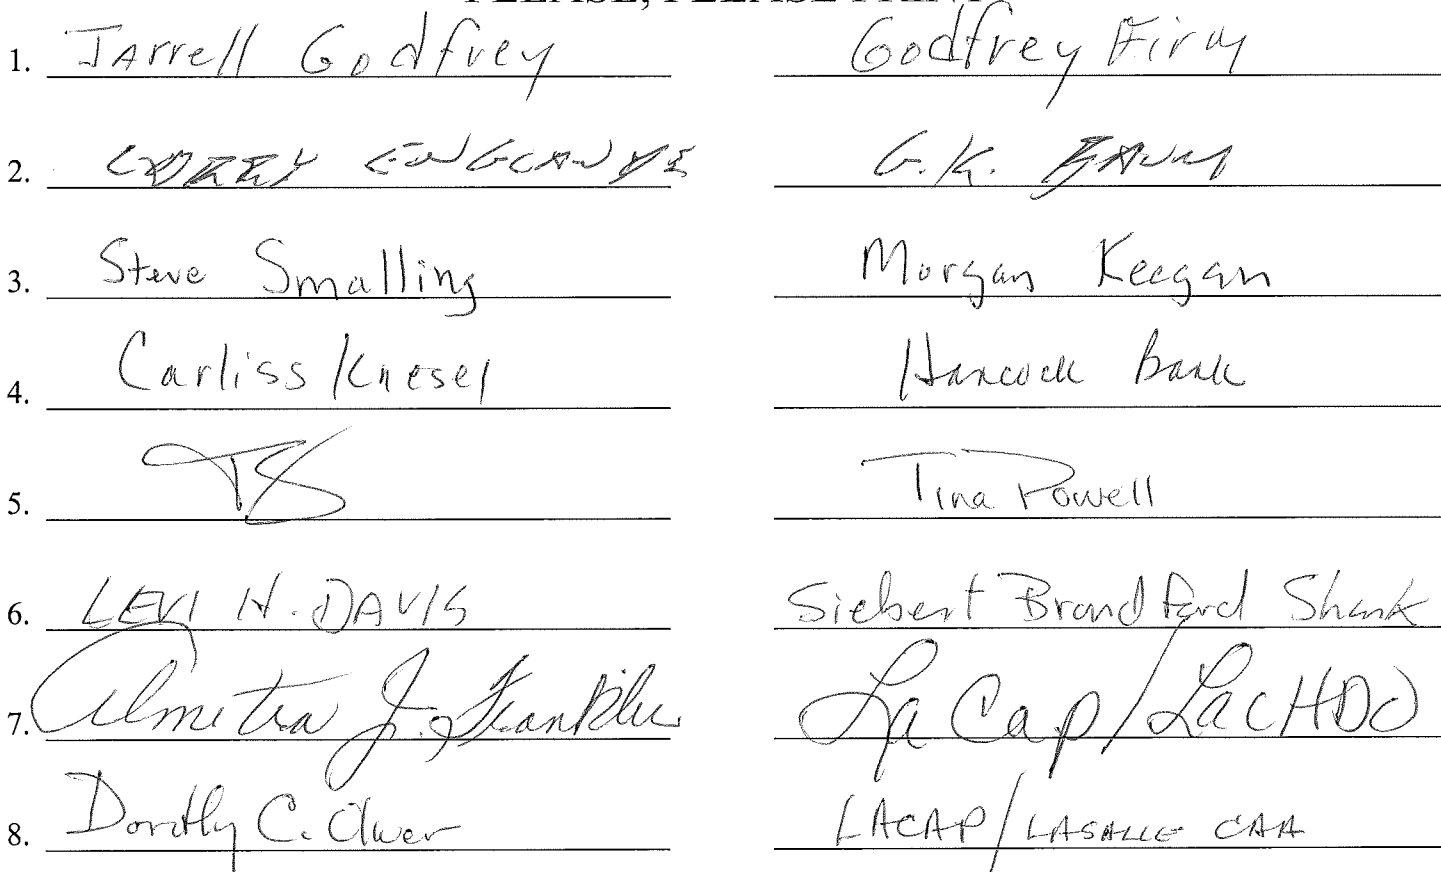 PLEASE, PLEASE PRINT
1. Jarrell Godfrey Godfrey Firm
2. G.K. BAUM
3. Steve Smalling Morgan Keegan
4. Carliss Knesel Hancock Bank
5. Tina Powell
6. LEVI H. DAVIS Siebert Brandford Shank
7. Almetra J. Franklin La Cap/LaCHDO
8. Dorothy C. Oliver LACAP/LASALLE CAA